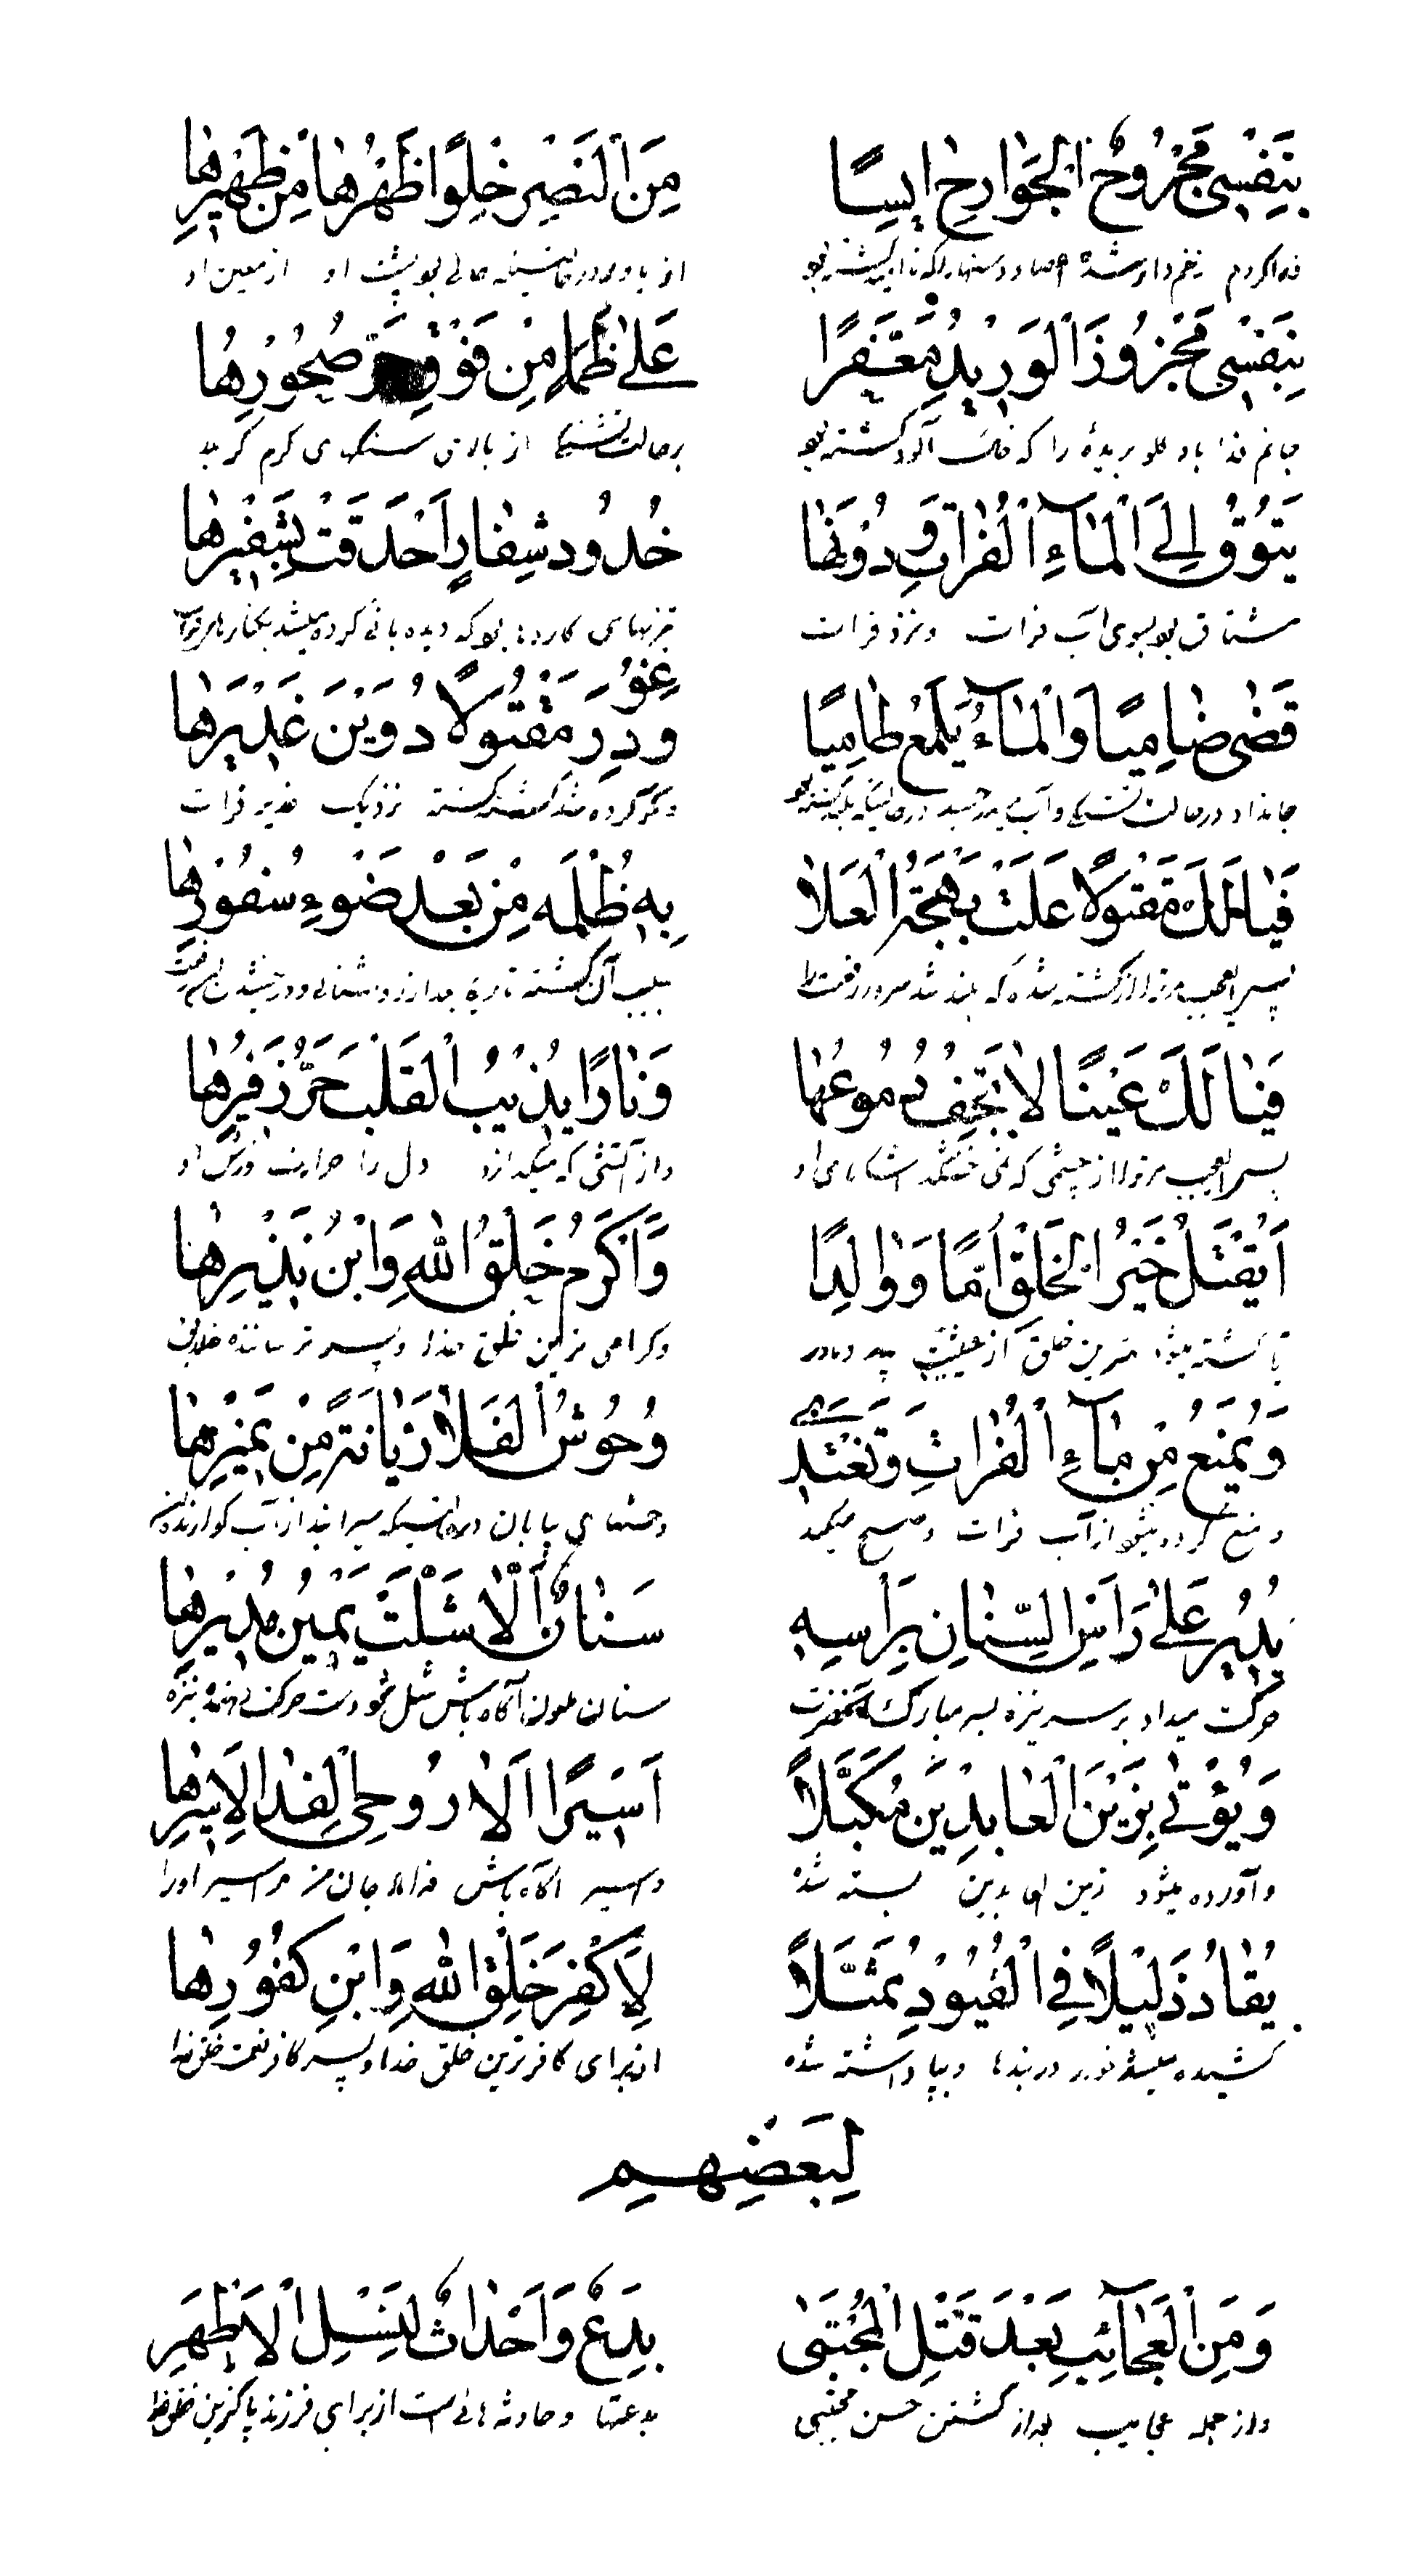 بِنَفْسِي مَجْرُوحُ الْجَوَارِحِ ايِسًا مِنَ الْنَصِيرِ خَلِوًا ظَهْرُهَا مِنْ ظَهِيرِهَا
فدا کردم زخم دار شده از یاور در حالتیکه خالی بود پشت او از معین او
بِنَفْسِي مَجْزُوزَ الْوَرِيدِ مُعَفَّرًا عَلَى ظَمَاءٍ مِنْ فَوْقِ حَرِّ صُخُورِهَا
جانم فدا باد گلو بریده را که خاک آلود گشته بود بر حالت تشنگی از بالای سنگهای گرم کربلا
يَتُوقُ إِلَى الْمَاءِ الْفُرَاتِ وَدُونَهَا خُدُودُ شِفَارٍ أَحْدَقَتْ بِشَفِيرِهَا
مشتاق بود بسوی آب فرات و نزد فرات تیزیهای کاردها بود که دیده بانی کرده میشد بکنارهای فرات
قَضَى ضَامِيًا وَالْمَاءُ يَلْمَعُ طَامِيًا وَغُودِرَ مَقْتُولًا دُوَيْنَ غَدِيرِهَا
جانداد در حالت تشنگی و آب میدرخشید و ترک کرده شد کشته گشته نزدیک غدیر فرات
فَيَالَكَ مَقْتُولًا عَلَتْ بَهْجَةُ الْعَلَا بِهِ ظُلْمَه مِنْ بَعْدِ ضَوْءِ سُفُورِهَا
پس العجب مر تو را از کشته شده که بلند شد سرور رفعت را بسبب آن کشته تاریکی بعد از روشنائی و درخشیدن
فَيَا لَكَ عَيْنًا لَا تَجِفُّ دُمُوعُهَا وَنَارًا يُذِيبُ الْقَلْبَ حَرُّ زَفِيرِهَا
پس العجب مر تو را از چشمی که نمی خشکد اشکهای او و از آتشی که میگدازد دل را حرارت او
أَيُقْتَلُ خَيْرُ الْخَلْقِ أُمًّا وَوَالِدًا وَأَكْرَمُ خَلْقِ اللهِ وَابْنُ نَذِيرِهَا
آیا کشته میشود بهترین خلق از حیثیت پدر و مادر و گرامی ترین خلق خدا و پسر ترساننده خلایق
وَيُمْنَعُ مِنْ مَاءِ الْفُرَاتِ وَتَغْتَدِي وُحُوشُ الْفَلَا رَيَّانَةً مِنْ نَمِيرِهَا
و منع کرده میشود از آب فرات و صبح میکند وحشهای بیابان در حالتیکه سیرابند از آب گوارنده
يُدِيرُ عَلَى رَأْسِ السِّنَانِ بِرَأْسِهِ سَنَانٌ أَلَا شَلَّتْ يَمِينُ مُدِيرِهَا
حرکت میداد بر سر نیزه بسر مبارک آنحضرت سنان ملعون آگاه باش شل شود دست حرکت دهنده نیزه
وَيُؤْتَى بِزَيْنِ الْعَابِدِينَ مُكَبَّلًا أَسِيرًا أَلَا رُوحِي الْفِدَا لِأَسِيرِهَا
و آورده میشود زین العابدین بسته شده و اسیر آگاه باش فدا باد جان من مر اسیر او را
يُقَادُ ذَلِيلًا فِي الْقُيُودِ مُمَثَّلًا لِأَكْفَرِ خَلْقِ اللهِ وَابْنِ كَفُورِهَا
کشیده میشد در بندها و بپا داشته شده از برای کافر ترین خلق خدا و پسر کافر نعمت خلق خدا
لِبَعْضِهِمِ
وَمِنَ الْعَجَائِبِ بَعْدَ قَتْلِ الْمُجْتَبَى بِدَعٌ وَأَحْدَاثٌ لِنَسْلِ الْأَطْهَرِ
و از جمله عجایب بعد از کشتن حسن مجتبی بدعتها و حادثه هائی است از برای فرزند پاکترین